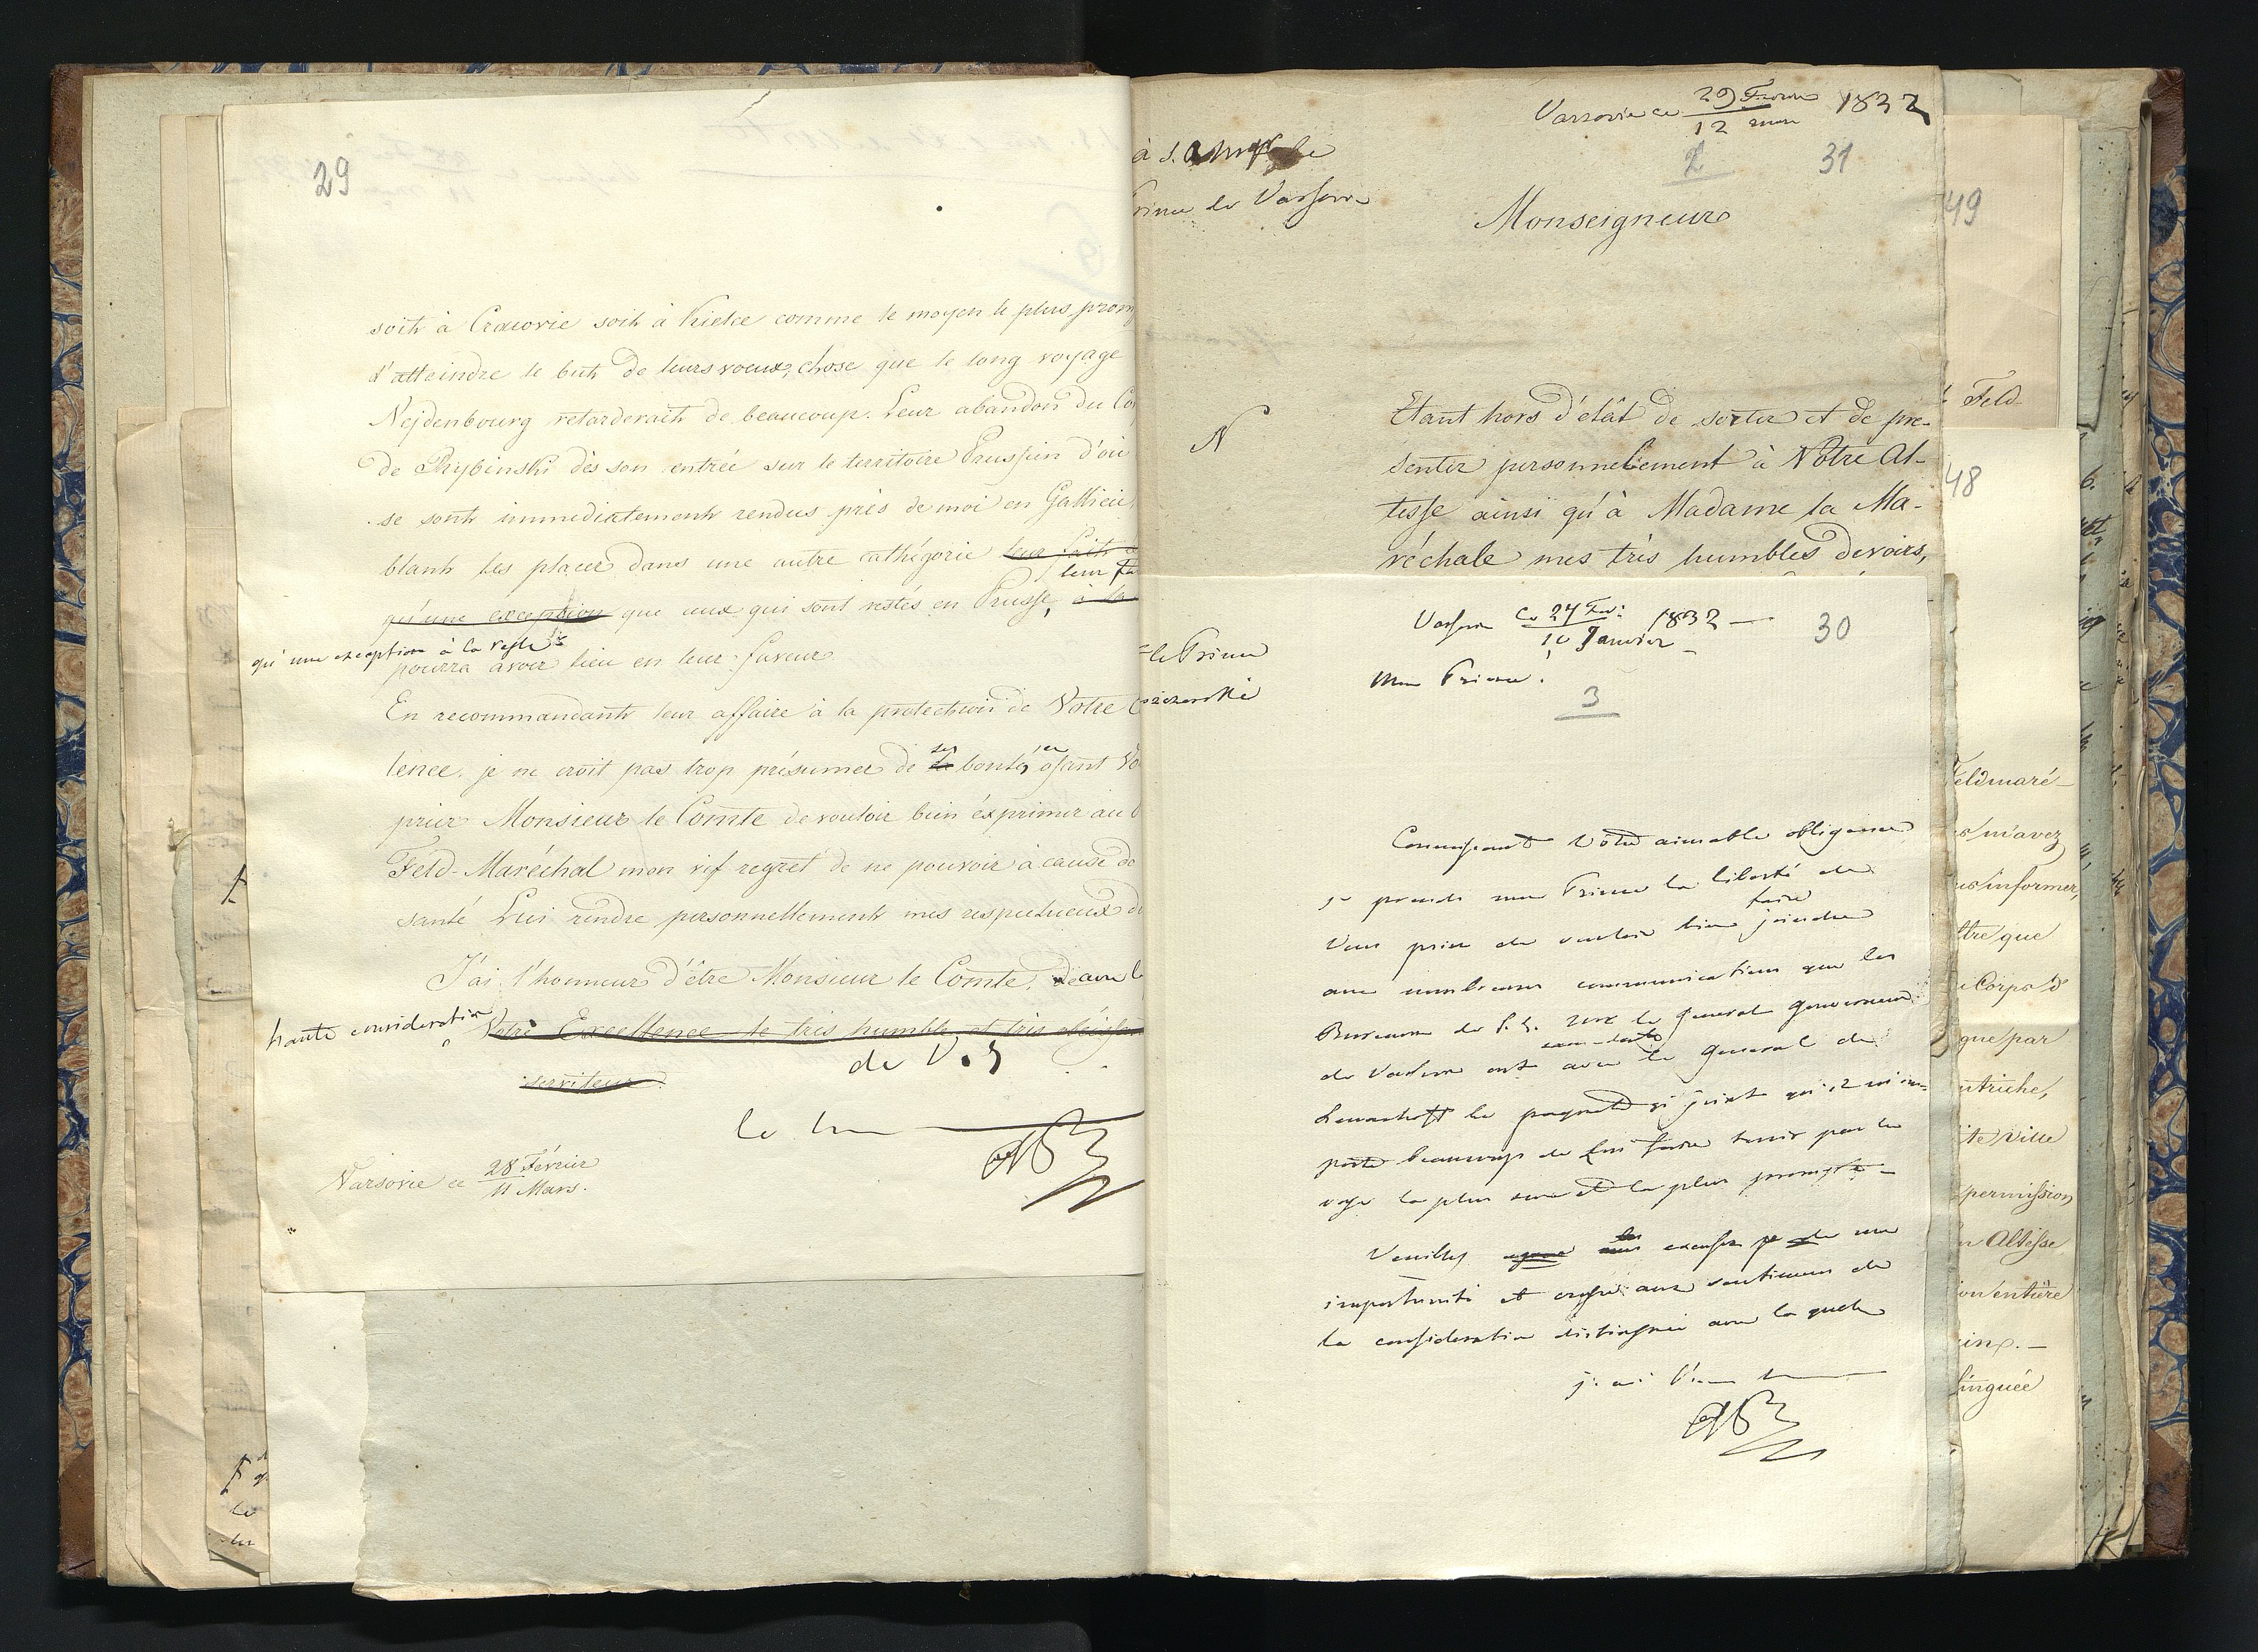 29
soit à Cracovie soit à Kielce comme le moyen le plus prom
d'atteindre le but de leurs voeux, chose que le long voyage
Nejdenbourg retarderait de beaucoup. Leur abandon du Co
de Rhybinski dès son entrée sur le territoire Prussien d'où
se sont immediatement rendus près de moi en Gallicie
blant les placer dans une autre cathégorie leur fait
leur fa
qu'une exception que ceux qui sont restés en Prusse, a la
qu'une exception à la regle
pourra avoir lieu en leur faveur
En recommandant leur affaire à la protection de Votre
lence, je ne croit pas trop présumer de ses bontés en osant Vo
prier Monsieur le Comte de vouloir bien éxprimer au
Feld-Maréchal mon vif regret de ne pouvoir à cause de
santé Lui rendre personnellement mes respectueux d
J'ai l'honneur d'être Monsieur le Comte, avec l
haute consideration
Votre Excellence le très humble et très obéissan
de V. E
serviteur
le
Varsovie ce 28 Février
11 Mars.
Varsovie ce 29 Fevrier 1832
12 mars
2
31
à S. A. le
rince de Varsovie
Monseigneur
N
Etant hors d'etât de sortir et de pre-
senter personnellement à Vôtre Al-
tesse ainsi qu'à Madame la Ma-
réchale mes très humbles devoirs,
Varsovie Ce 27 Fev: 1832
10 Janvier
30
le Prince
Mon Prince!
3
Connaissant Vôtre aimable obligeance
je prends mon Prince la liberté de
Vous prier de vouloir bien faire joindre
aux nombreuses communications que les
Bureaux de S. E. le General Gouverneur
de Varsovie ont avec le General de
le paquet ci joint qu'il m'im-
porte beaucoup de lui faire tenir par la
voye la plus sure et la plus prompte -
Veuillez les excuser de mon
importunité et croire aux sentimens de
la consideration distinguée avec la quelle
j'ai l'
49
Feld-
48
Feldmaré-
m'avez
informer,
ttre que
Corps d
gné par
utriche,
ite ville
permission
Altesse
entière
tinguée